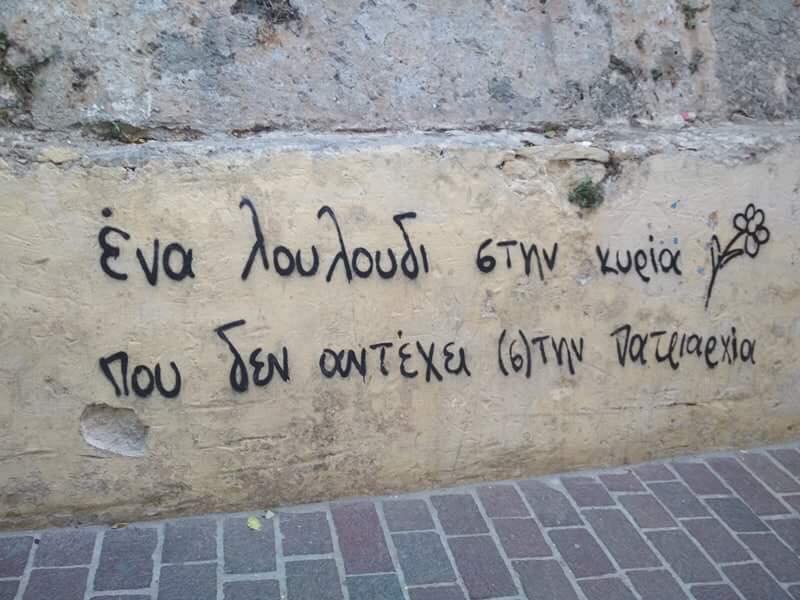 ένα λουλουδι στην κυρία
που δεν αντέχει (σ)την πατριαρχία